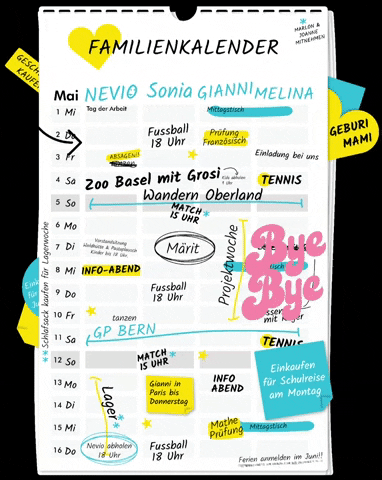 FAMILIENKALENDER
* MARLON &
JOANNE
MITNEHMEN
GESCH
KAUFE
Mai NEVIO Sonia GIANNI MELINA
1 Mi Tag der Arbeit Mittagstisch
2 Do Fussball
18 Uhr Prüfung
Französisch
GEBURT
MAMI
3 Fr ABSAGEN! Einladung bei uns
4 Sa Zoo Basel mit Grosi TENNIS
5 So Wandern Oberland
MATCH
15 UHR *
6 Mo
7 Di Märit
Projektwoche
8 Mi INFO-ABEND
Bye
Bye
9 Do Fussball
18 Uhr
10 Fr tanzen
11 Sa GP BERN TENNIS
12 So MATCH *
15 UHR
** Schlafsack kaufen für Lagerwoche
Einkaufen
für Schulreise
am Montag
13 Mo Gianni in
Paris bis
Donnerstag INFO
ABEND
14 Di Lager *
15 Mi Mathe
Prüfung Mittagstisch
16 Do Nevio abholen
18 Uhr Fussball
18 Uhr
Ferien anmelden im Juni!!